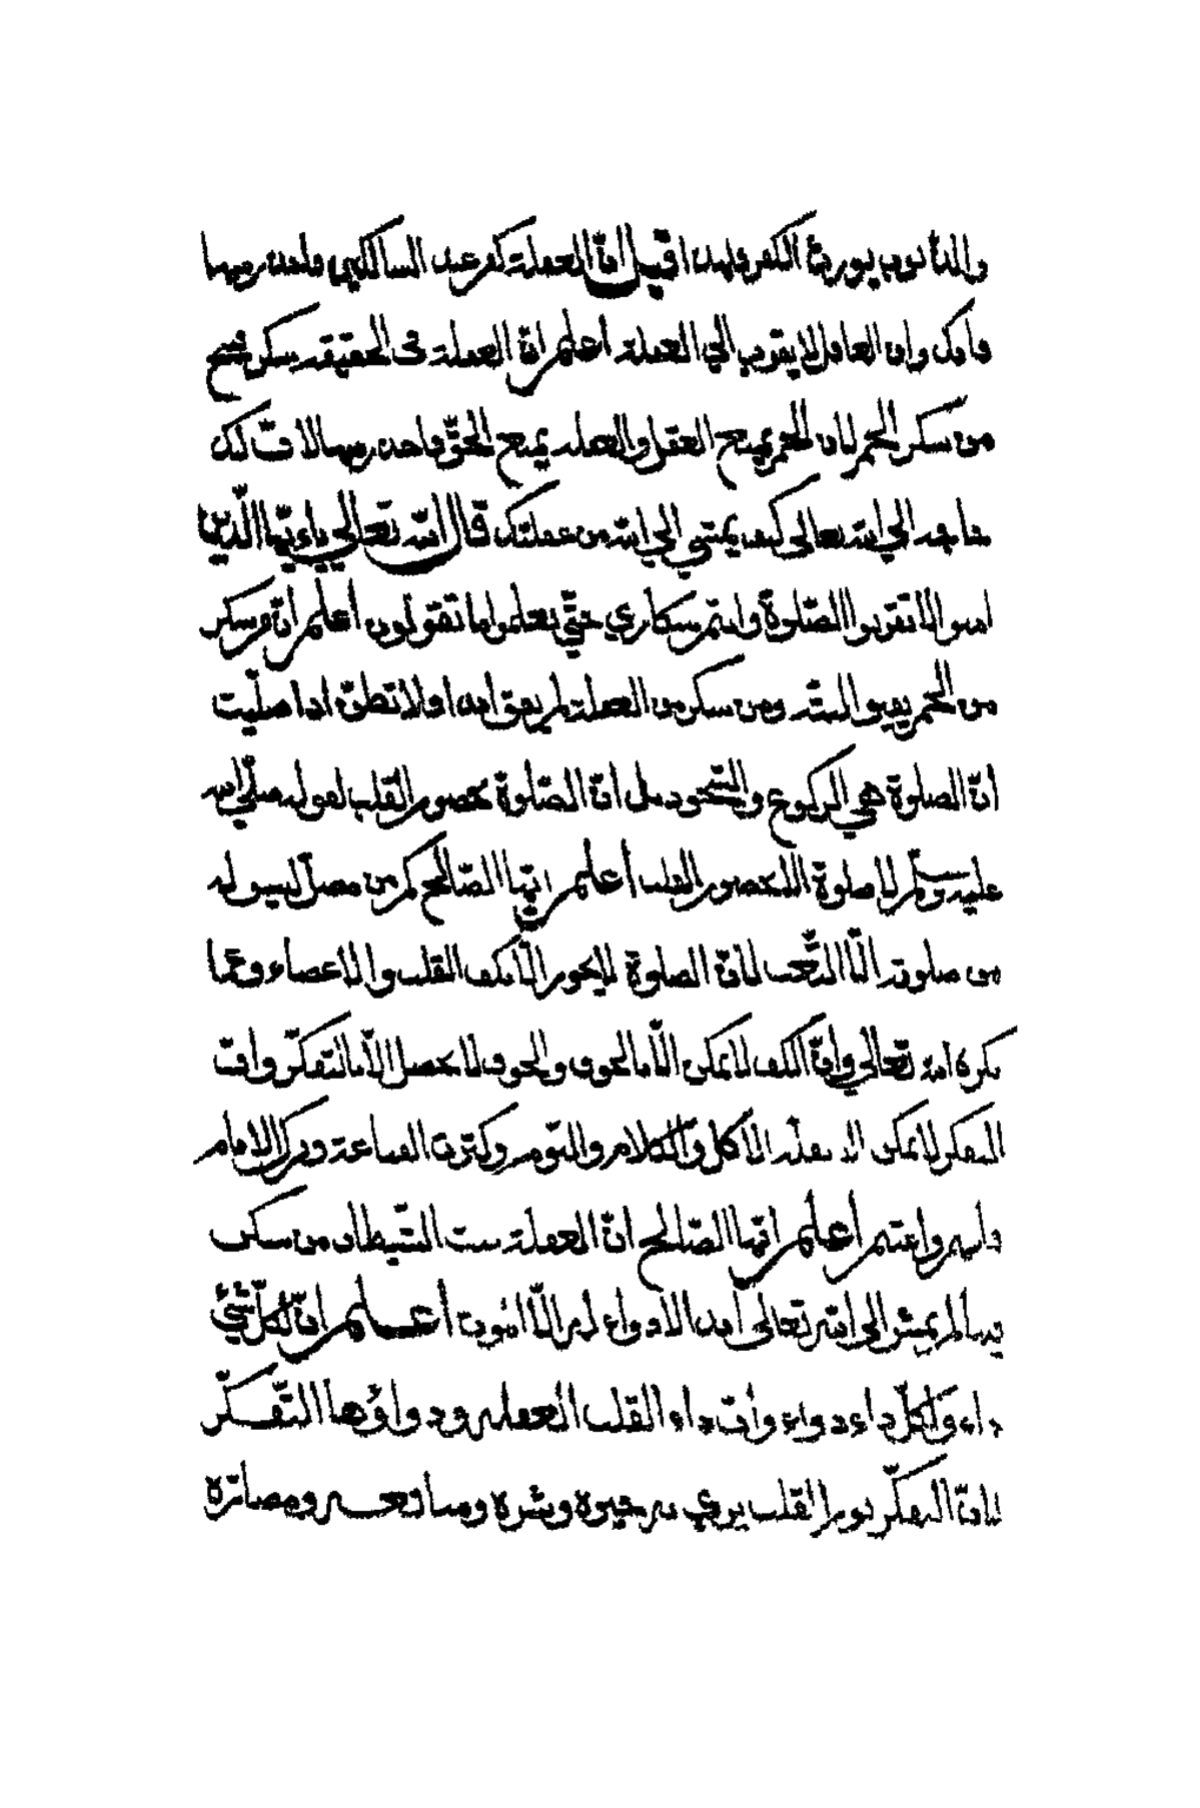 والذنوب يورث الكفر ولهذا قيل ان الغفلة كفر عند السالكين فاحذر منها
فانك وان الغافل لا يقرب الي الغفلة أعلم ان الغفلة في الحقيقة سكر
من سكر الخمر لان الخمر يمنع العقل والغفلة يمنع الحقّ فاحذر منها لانّك
الي الله تعالى كيف يمشي الي الله من غفلتك قال الله تعالي ياءيّها الّذين
امنوا لا تقربوا الصّلوة وانتم سكاري حتّي تعلموا ما تقولون أعلم انّ من سكر
من الخمر يفيق البتّة ومن سكر من الغفلة لم يفق ابدا ولا تظنّ اذا صلّيت
انّ الصلوة هي الركوع والسّجود بل انّ الصّلوة بحضور القلب لقوله صلّي الله
عليه وسلّم لا صلوة الا بحضور القلب أعلم ايّها الصّالح كم من مصلّ ليس له
من صلوته الّا التّعب لانّ الصلوة لا يجوز الّا بكف القلب والاعضاء وعمّا
يكره الله تعالي وانّ الكف لا يمكن الّا بالخوف والخوف لا يحصل الّا بالتفكّر وانّ
التفكر لا يمكن الا بقلّة الاكل والكلام والنّوم وكثرت القناعة وترك الامام
وأعتبر أعلم ايّها الصّالح انّ الغفلة ست الشّيطان من سكر
لم يمش الي الله تعالى ابدا لا دواء له الّا الموت أعلم انّ لكلّ شئ
داء ولكلّ داء دواء وانّ داء القلب الغفلة ودواؤها التّفكّر
لانّ التفكّر نور القلب يري به خيره وشره ومنافعه ومضارّه